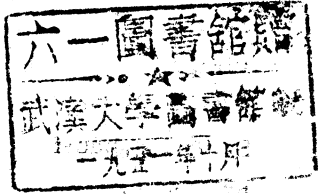 六一圖書館贈
武漢大學圖書館
一九五一年十月